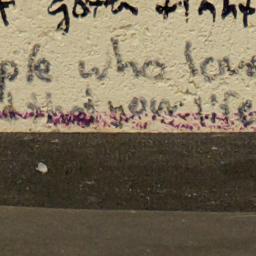 gotta fight
ple who love
that your life